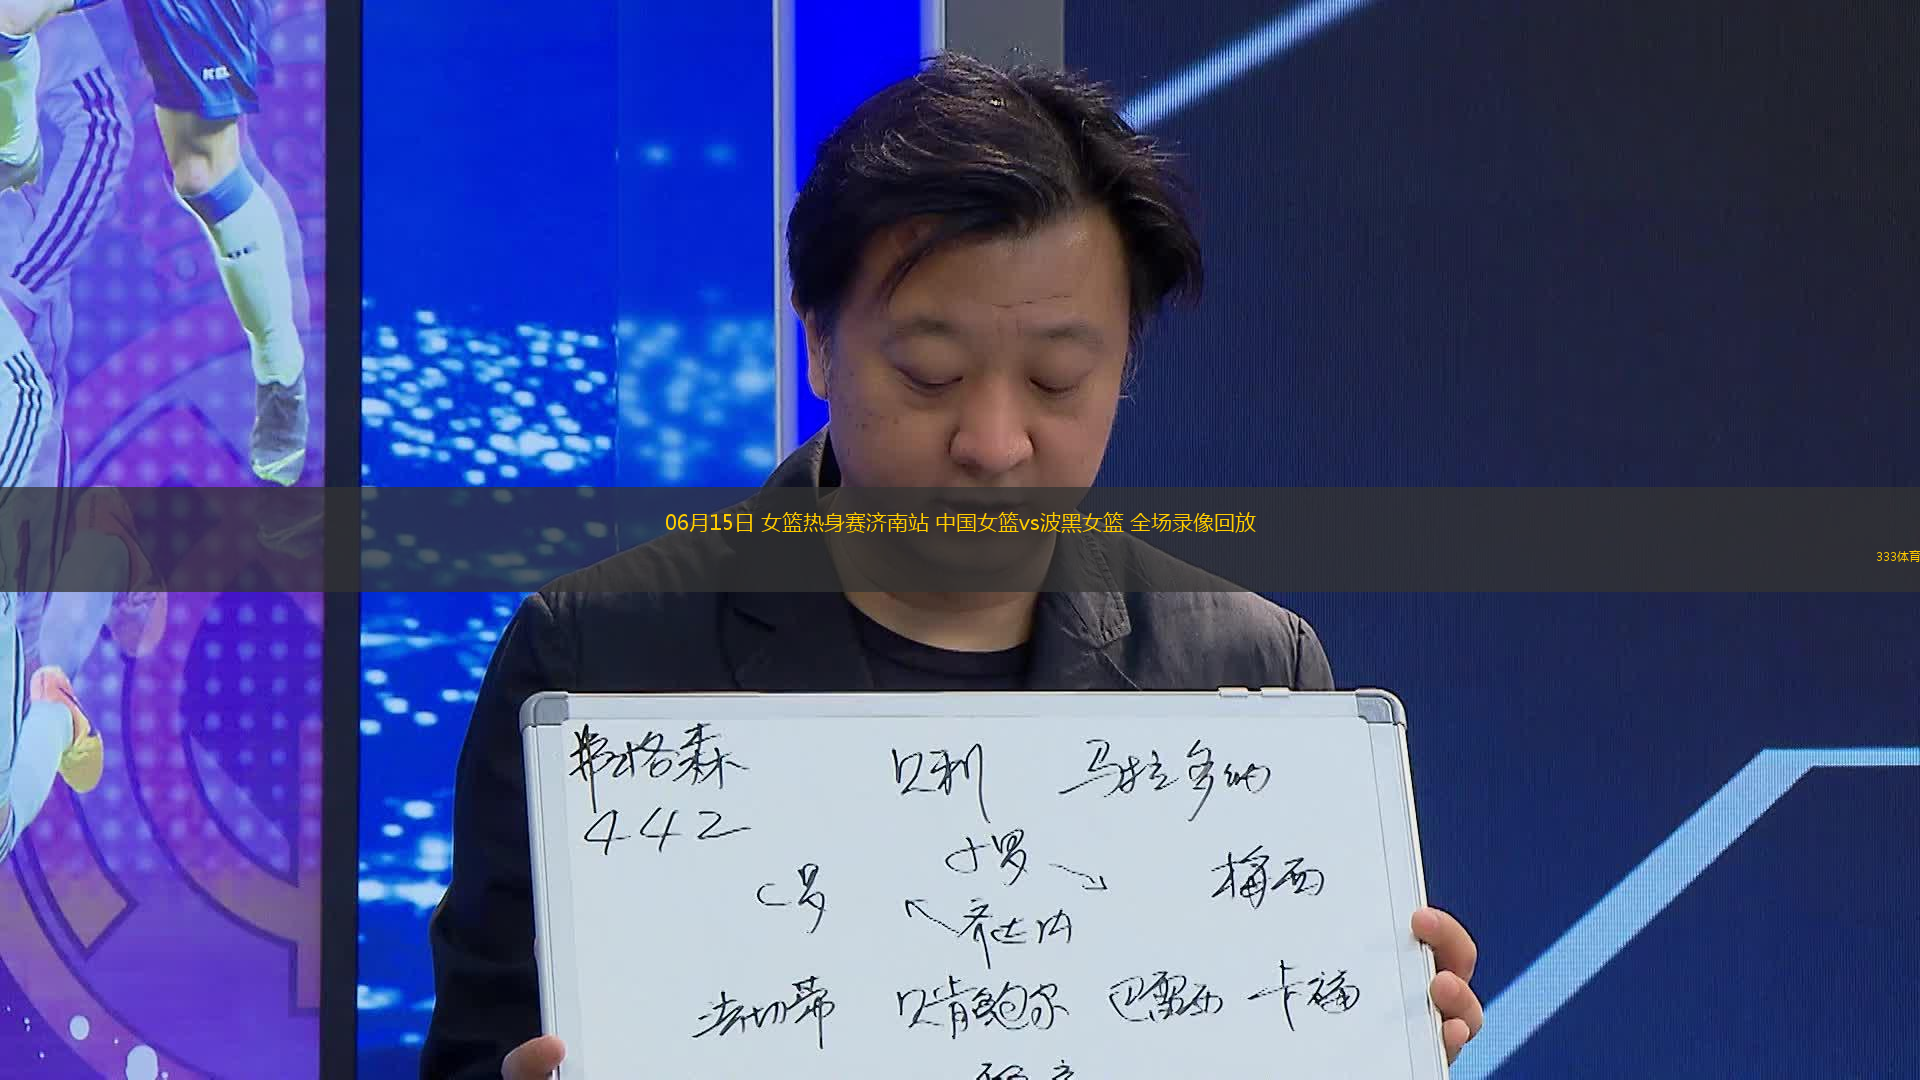 KEL
06月15日 女篮热身赛济南站 中国女篮vs波黑女篮 全场录像回放
333体育
弗格森 贝利 马拉多纳
442
小罗
C罗 梅西
齐达内
法切蒂 贝肯鲍尔 巴雷西 卡福